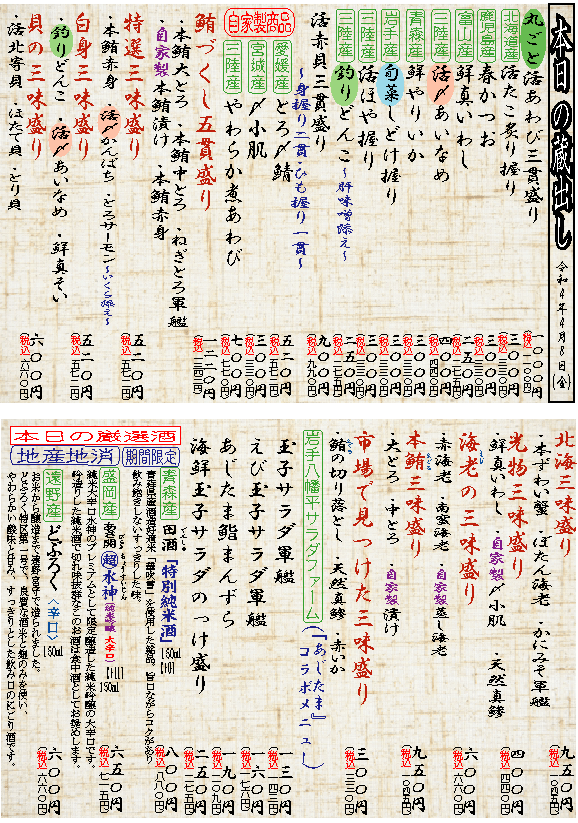 本日の蔵出し 令和4年4月8日(金)
丸ごと 活あわび三貫盛り 一〇〇〇円 (税込一一〇〇円)
北海道産 活たこ炙り握り 三〇〇円 (税込三三〇円)
鹿児島産 春かつお 三〇〇円 (税込三三〇円)
富山産 鮮真いわし 二五〇円 (税込二七五円)
三陸産 活〆あいなめ 四〇〇円 (税込四四〇円)
青森産 鮮やりいか 三〇〇円 (税込三三〇円)
岩手産 旬菜しどけ握り 三〇〇円 (税込三三〇円)
三陸産 活ほや握り 三〇〇円 (税込三三〇円)
三陸産 釣りどんこ 〜肝味噌添え〜 二五〇円 (税込二七五円)
活赤貝三貫盛り 九〇〇円 (税込九九〇円)
〜身握り二貫・ひも握り一貫〜
自家製商品
愛媛産 とろ〆鯖 五二〇円 (税込五七二円)
宮城産 〆小肌 三〇〇円 (税込三三〇円)
三陸産 やわらか煮あわび 七〇〇円 (税込七七〇円)
鮪づくし五貫盛り 一二二〇円 (税込一三四二円)
・本鮪大とろ ・本鮪中とろ ・ねぎとろ軍艦
・自家製本鮪漬け ・本鮪赤身
特選三味盛り 五二〇円 (税込五七二円)
・本鮪赤身 ・活〆かんぱち ・とろサーモン〜いくら添え〜
白身三味盛り 五二〇円 (税込五七二円)
・釣りどんこ ・活〆あいなめ ・鮮真そい
貝の三味盛り 六〇〇円 (税込六六〇円)
・活北寄貝 ・ほたて貝 ・とり貝
北海三味盛り 九五〇円 (税込一〇四五円)
・本ずわい蟹 ・ぼたん海老 ・かにみそ軍艦
光物三味盛り 四〇〇円 (税込四四〇円)
・鮮真いわし ・自家製〆小肌 ・天然真鯵
海老の三味盛り 六〇〇円 (税込六六〇円)
・赤海老 ・南蛮海老 ・自家製蒸し海老
本鮪三味盛り 九五〇円 (税込一〇四五円)
・大とろ ・中とろ ・自家製漬け
市場で見つけた三味盛り 三〇〇円 (税込三三〇円)
・鮪の切り落とし ・天然真鯵 ・赤いか
岩手八幡平サラダファーム(『あじたま』コラボメニュー)
玉子サラダ軍艦 一三〇円 (税込一四三円)
えび玉子サラダ軍艦 一六〇円 (税込一七六円)
あじたま鮨まんずら 一九〇円 (税込二〇九円)
海鮮玉子サラダのっけ盛り 二五〇円 (税込二七五円)
本日の厳選酒
地産地消 期間限定
青森産 田酒「特別純米酒」 180ml 八〇〇円 (税込八八〇円)
盛岡産 あさ開 超水神(純米吟醸 大辛口) 150ml 六五〇円 (税込七一五円)
純米大辛口水神のプレミアムとして限定醸造した純米吟醸の大辛口です。
遠野産 どぶろく〈辛口〉 150ml 六〇〇円 (税込六六〇円)
お米から醸造まで遠野宮守で造られました。
どぶろく特区第一号で、良質な酒米と麹のみを使い、
やわらかい酸味と甘み、すっきりとした飲み口のにごり酒です。